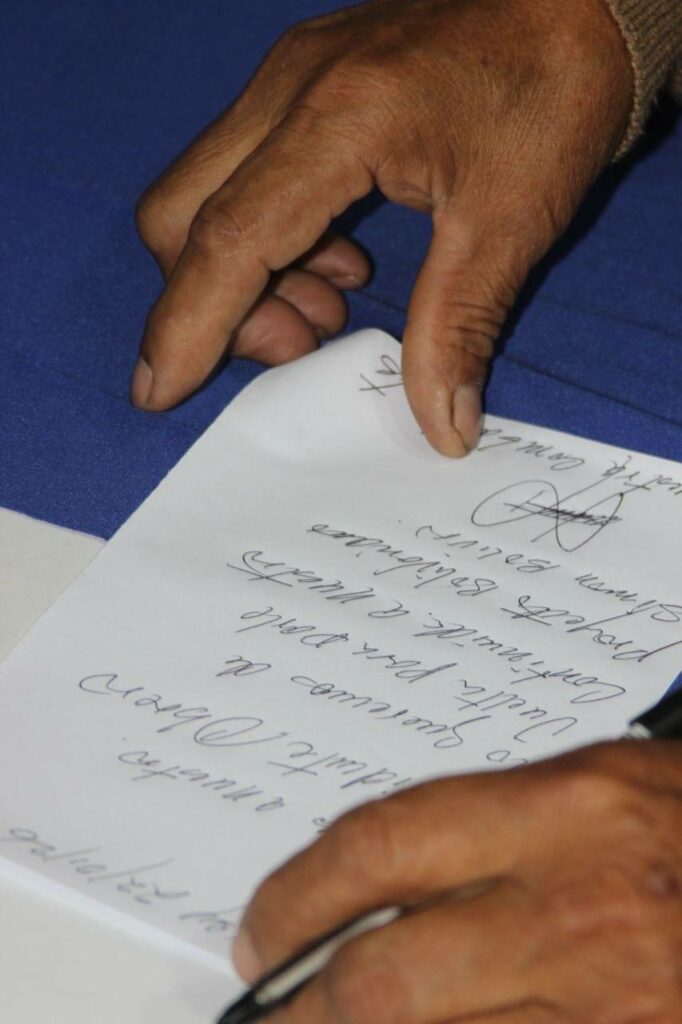 22/01/26
a nuestro.
idente Obrero
lo queremos de
Vuelta para darle
Continuidad a nuestro
proyecto Bolivariano
Simon Bolivar.